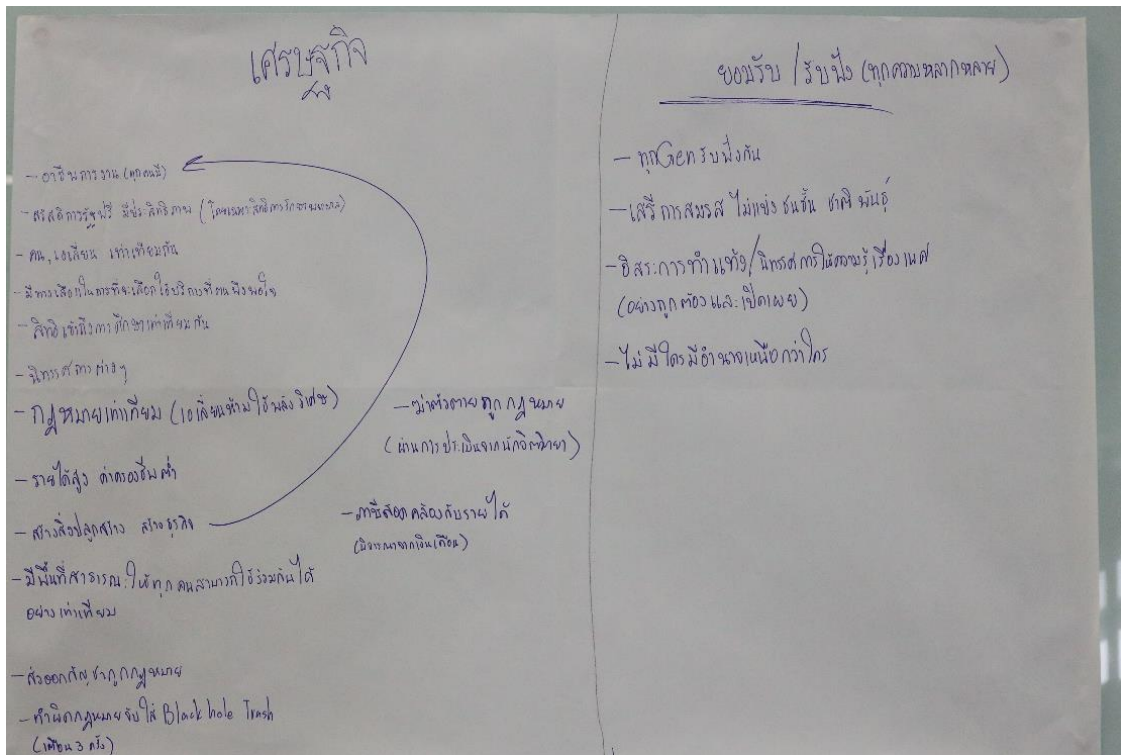 เศรษฐกิจ
- อาชีพการงาน (ทุกคนมี)
- สวัสดิการรัฐฟรี มีประสิทธิภาพ (โดยเฉพาะสิทธิการรักษาพยาบาล)
- คน, เอเลี่ยน เท่าเทียมกัน
- มีทางเลือกในการที่จะเลือกใช้บริการที่ตนพึงพอใจ
- สิทธิเข้าถึงการศึกษาเท่าเทียมกัน
- นิทรรศการต่างๆ
- กฎหมายเท่าเทียม (เอเลี่ยนห้ามใช้พลังวิเศษ)
- รายได้สูง ค่าครองชีพต่ำ
- สร้างสิ่งปลูกสร้าง สร้างธุรกิจ
- มีพื้นที่สาธารณะให้ทุกคนสามารถใช้ร่วมกันได้
อย่างเท่าเทียม
- ส่งออกกัญชาถูกกฎหมาย
- ทำผิดกฎหมายจับใส่ Black hole Trash
(เตือน 3 ครั้ง)
- ฆ่าตัวตายถูกกฎหมาย
(ผ่านการประเมินจากนักจิตวิทยา)
- ภาษีสอดคล้องกับรายได้
(พิจารณาจากเงินเดือน)
ยอมรับ / รับฟัง (ทุกความหลากหลาย)
- ทุกGenรับฟังกัน
- เสรีการสมรส ไม่แบ่งชนชั้น ชาติพันธุ์
- อิสระการทำแท้ง/นิทรรศการให้ความรู้เรื่องเพศ
(อย่างถูกต้องและเปิดเผย)
- ไม่มีใครมีอำนาจเหนือกว่าใคร